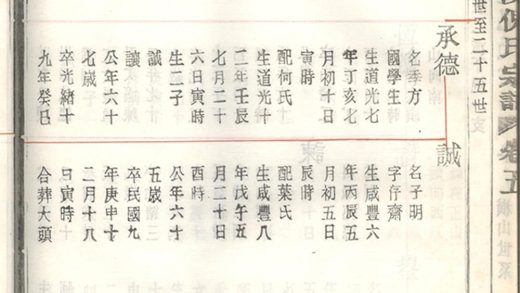 世至二十五世
侯氏宗譜 卷五
承德
名季方
國學生
生道光七
年丁亥七
月初十日
寅時
配何氏
生道光十
二年壬辰
七月二十
六日寅時
生二子
誠
讓
公年六十
七歲
卒光緒十
九年癸巳
誠
名子明
字仔齋
生咸豐六
年丙辰五
月初五日
辰時
配葉氏
生咸豐八
年戊午五
月二十日
酉時
公年六十
五歲
卒民國九
年庚申十
二月十八
日寅時
合葬大頭